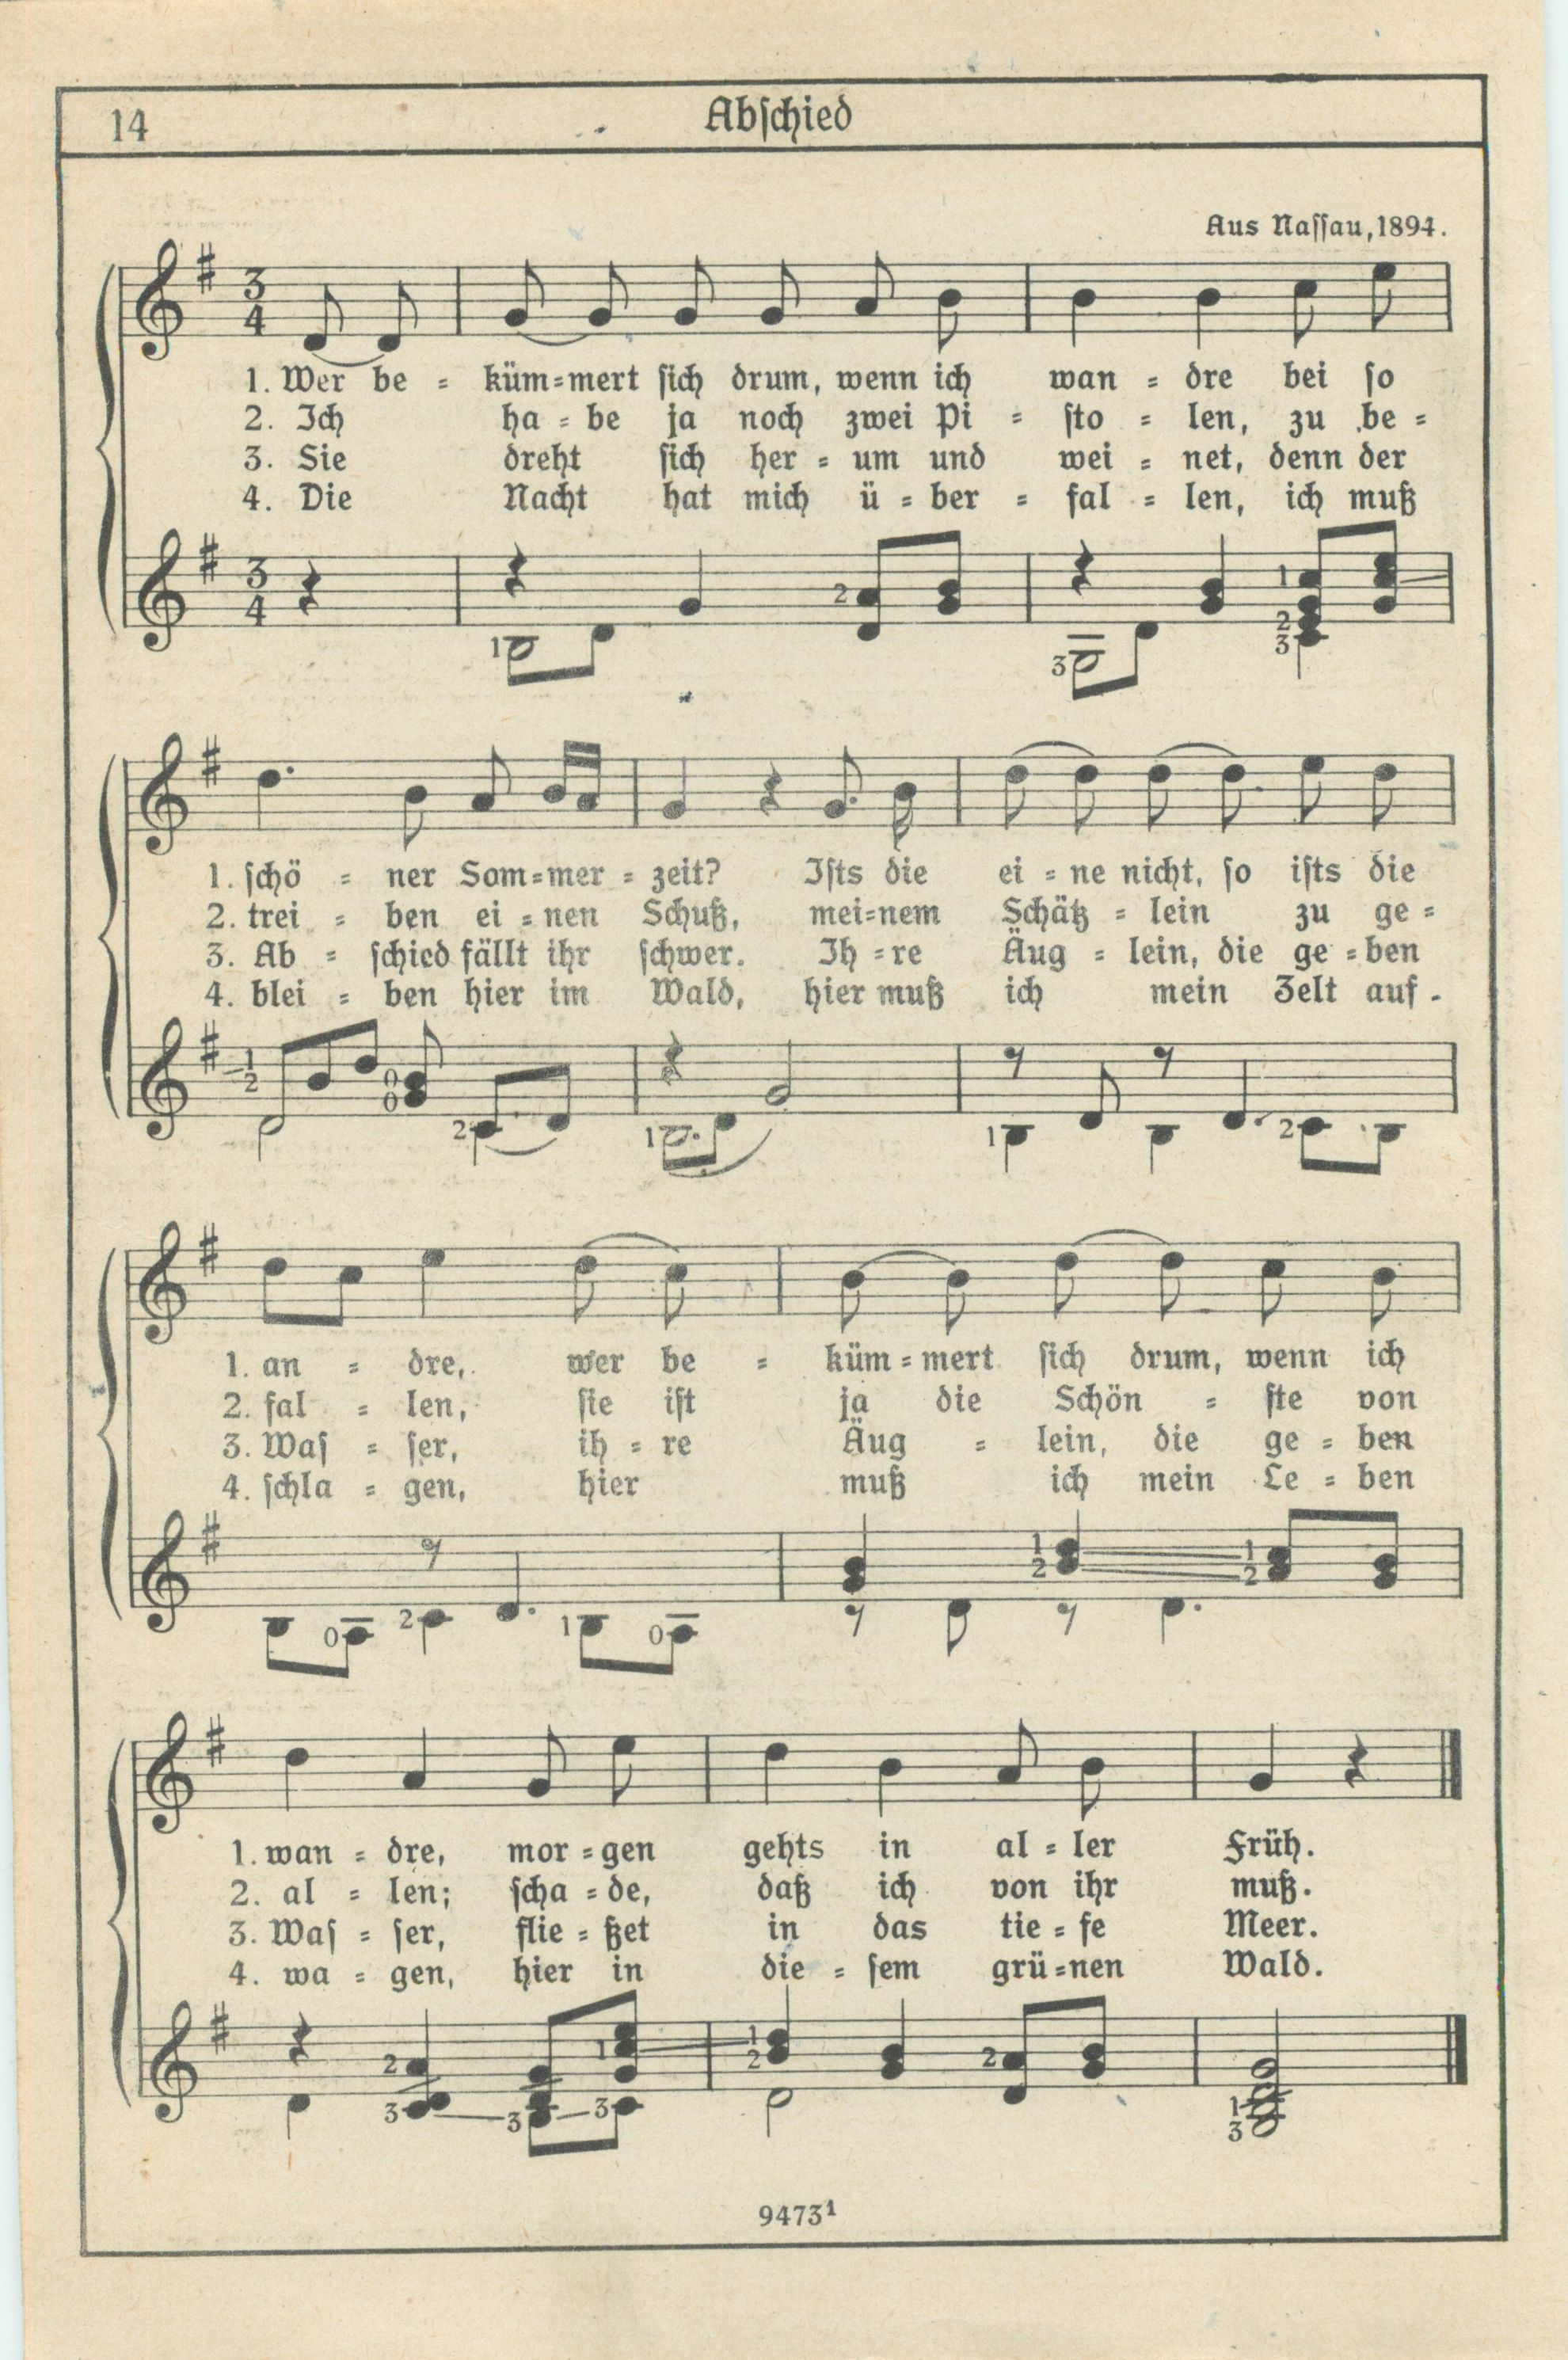 14
Abschied
Aus Nassau, 1894.
3
4
1. Wer be - küm=mert sich drum, wenn ich wan - dre bei so
2. Ich ha - be ja noch zwei Pi - sto - len, zu be -
3. Sie dreht sich her - um und wei - net, denn der
4. Die Nacht hat mich ü - ber - fal - len, ich muß
3
4
1 2 3 1 2 3
1. schö - ner Som=mer - zeit? Ists die ei - ne nicht, so ists die
2. trei - ben ei - nen Schuß, mei=nem Schätz - lein zu ge -
3. Ab - schied fällt ihr schwer. Ih - re Äug - lein, die ge - ben
4. blei - ben hier im Wald, hier muß ich mein Zelt auf -
1 2 0 0 2 1 1 2
1. an - dre, wer be - küm - mert sich drum, wenn ich
2. fal - len, sie ist ja die Schön - ste von
3. Was - ser, ih - re Äug - lein, die ge - ben
4. schla - gen, hier muß ich mein Le - ben
0 2 1 0 1 2 1 2
1. wan - dre, mor - gen gehts in al - ler Früh.
2. al - len; scha - de, daß ich von ihr muß.
3. Was - ser, flie - ßet in das tie - fe Meer.
4. wa - gen, hier in die - sem grü=nen Wald.
2 3 3 1 3 1 2 2 1 3
9473¹